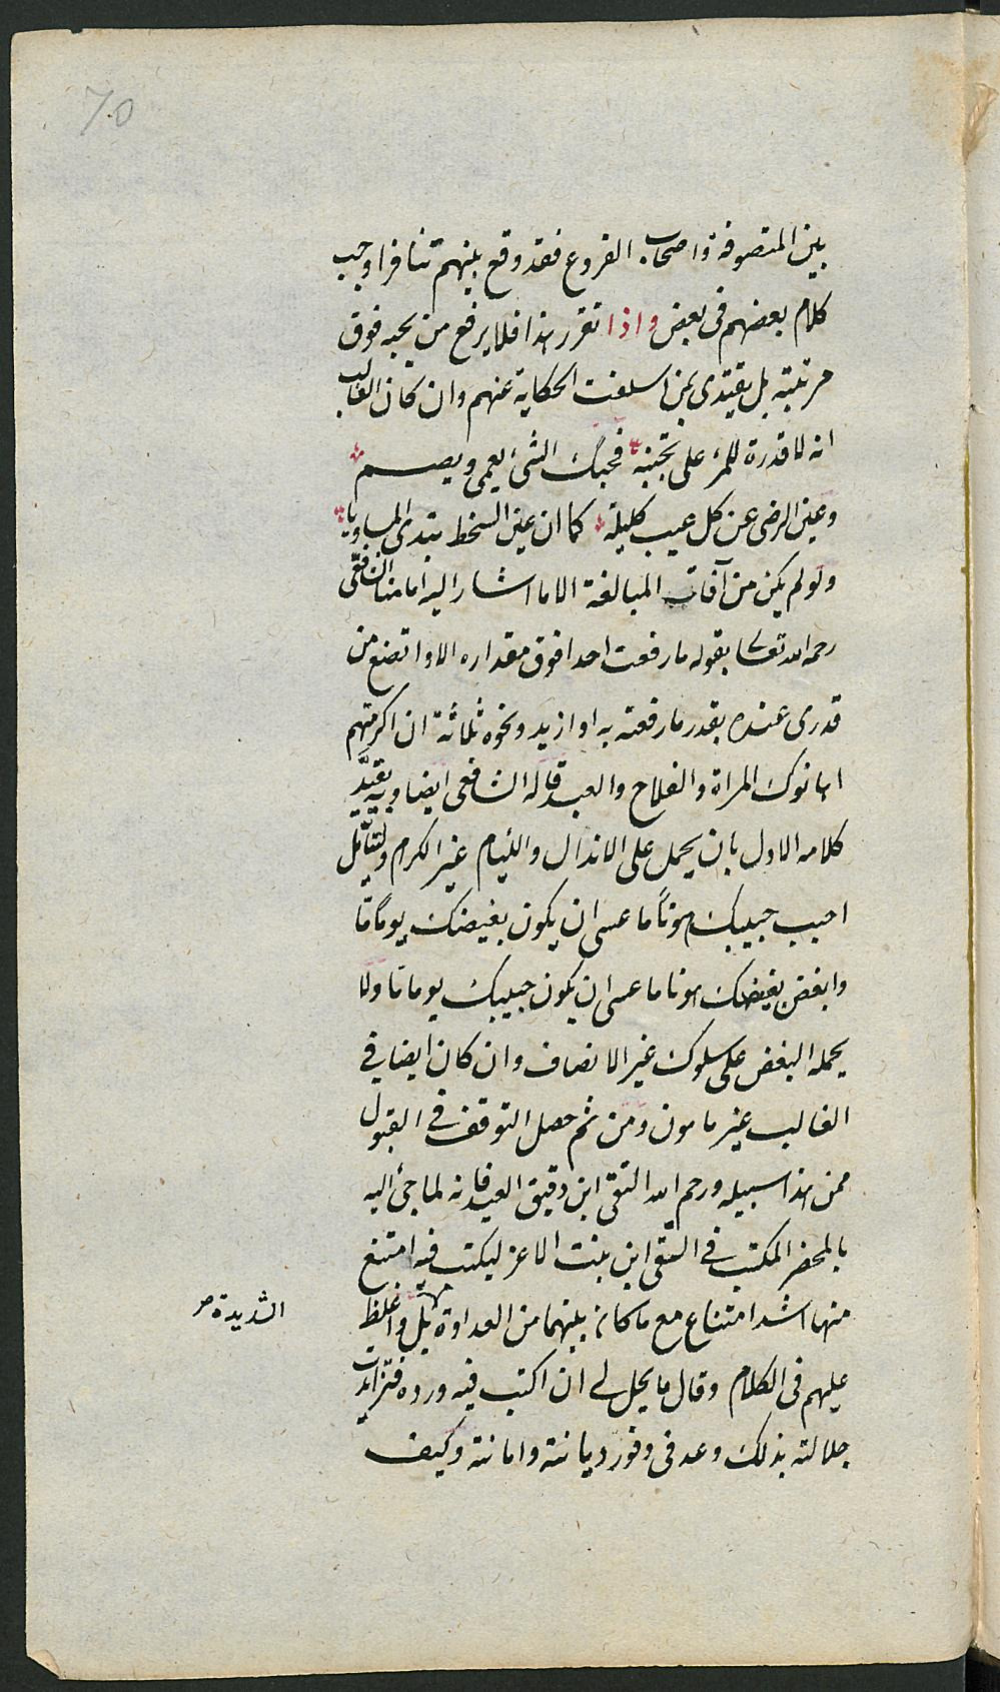 70
بين المتصوفة واصحاب الفروع فقد وقع بينهم تنافر اوجب
كلام بعضهم فى بعض واذا تقرر هذا فلا يرفع من يحبه فوق
مرتبته بل يقتدى بمن اسلفت الحكاية عنهم وان كان الغالب
انه لا قدرة للمرء على تجنبه فحبك الشئ يعمى ويصم
وعين الرضى عن كل عيب كليلة كما ان عين السخط تبدى المساويا
ولو لم يكن من آفات المبالغة الا ما اشار اليه امامنا الشافعى
رحمه الله تعالى بقوله ما رفعت احدا فوق مقداره الا واتضع من
قدرى عنده بقدر ما رفعته به او ازيد ونحوه ثلاثة ان اكرمتهم
اهانوك المراة والفلاح والعبد قاله الشافعى ايضا وبه يقيَّد
كلامه الاول بان يحمل على الانذال واللئام غير الكرام ولقائل
احبب حبيبك هونًا ما عسى ان يكون بغيضك يومًا ما
وابغض بغيضك هونا ما عسى ان يكون حبيبك يوما ما ولا
يحمله البغض على سلوك غير الانصاف وان كان ايضا في
الغالب غير مامون ومن ثم حصل التوقف في القبول
ممن هذا سبيله ورحم الله التقى ابن دقيق العيد فانه لما جئ اليه
بالمحضر المكتتب في التقى ابن بنت الاعز ليكتب فيه امتنع
منها اشد امتناع مع ما كان بينهما من العداوة بل واغلظ
الشديدة صح
عليهم فى الكلام وقال ما يحل لي ان اكتب فيه ورده فتزايدت
جلالته بذلك وعد فى وفور ديانته وامانته وكيف